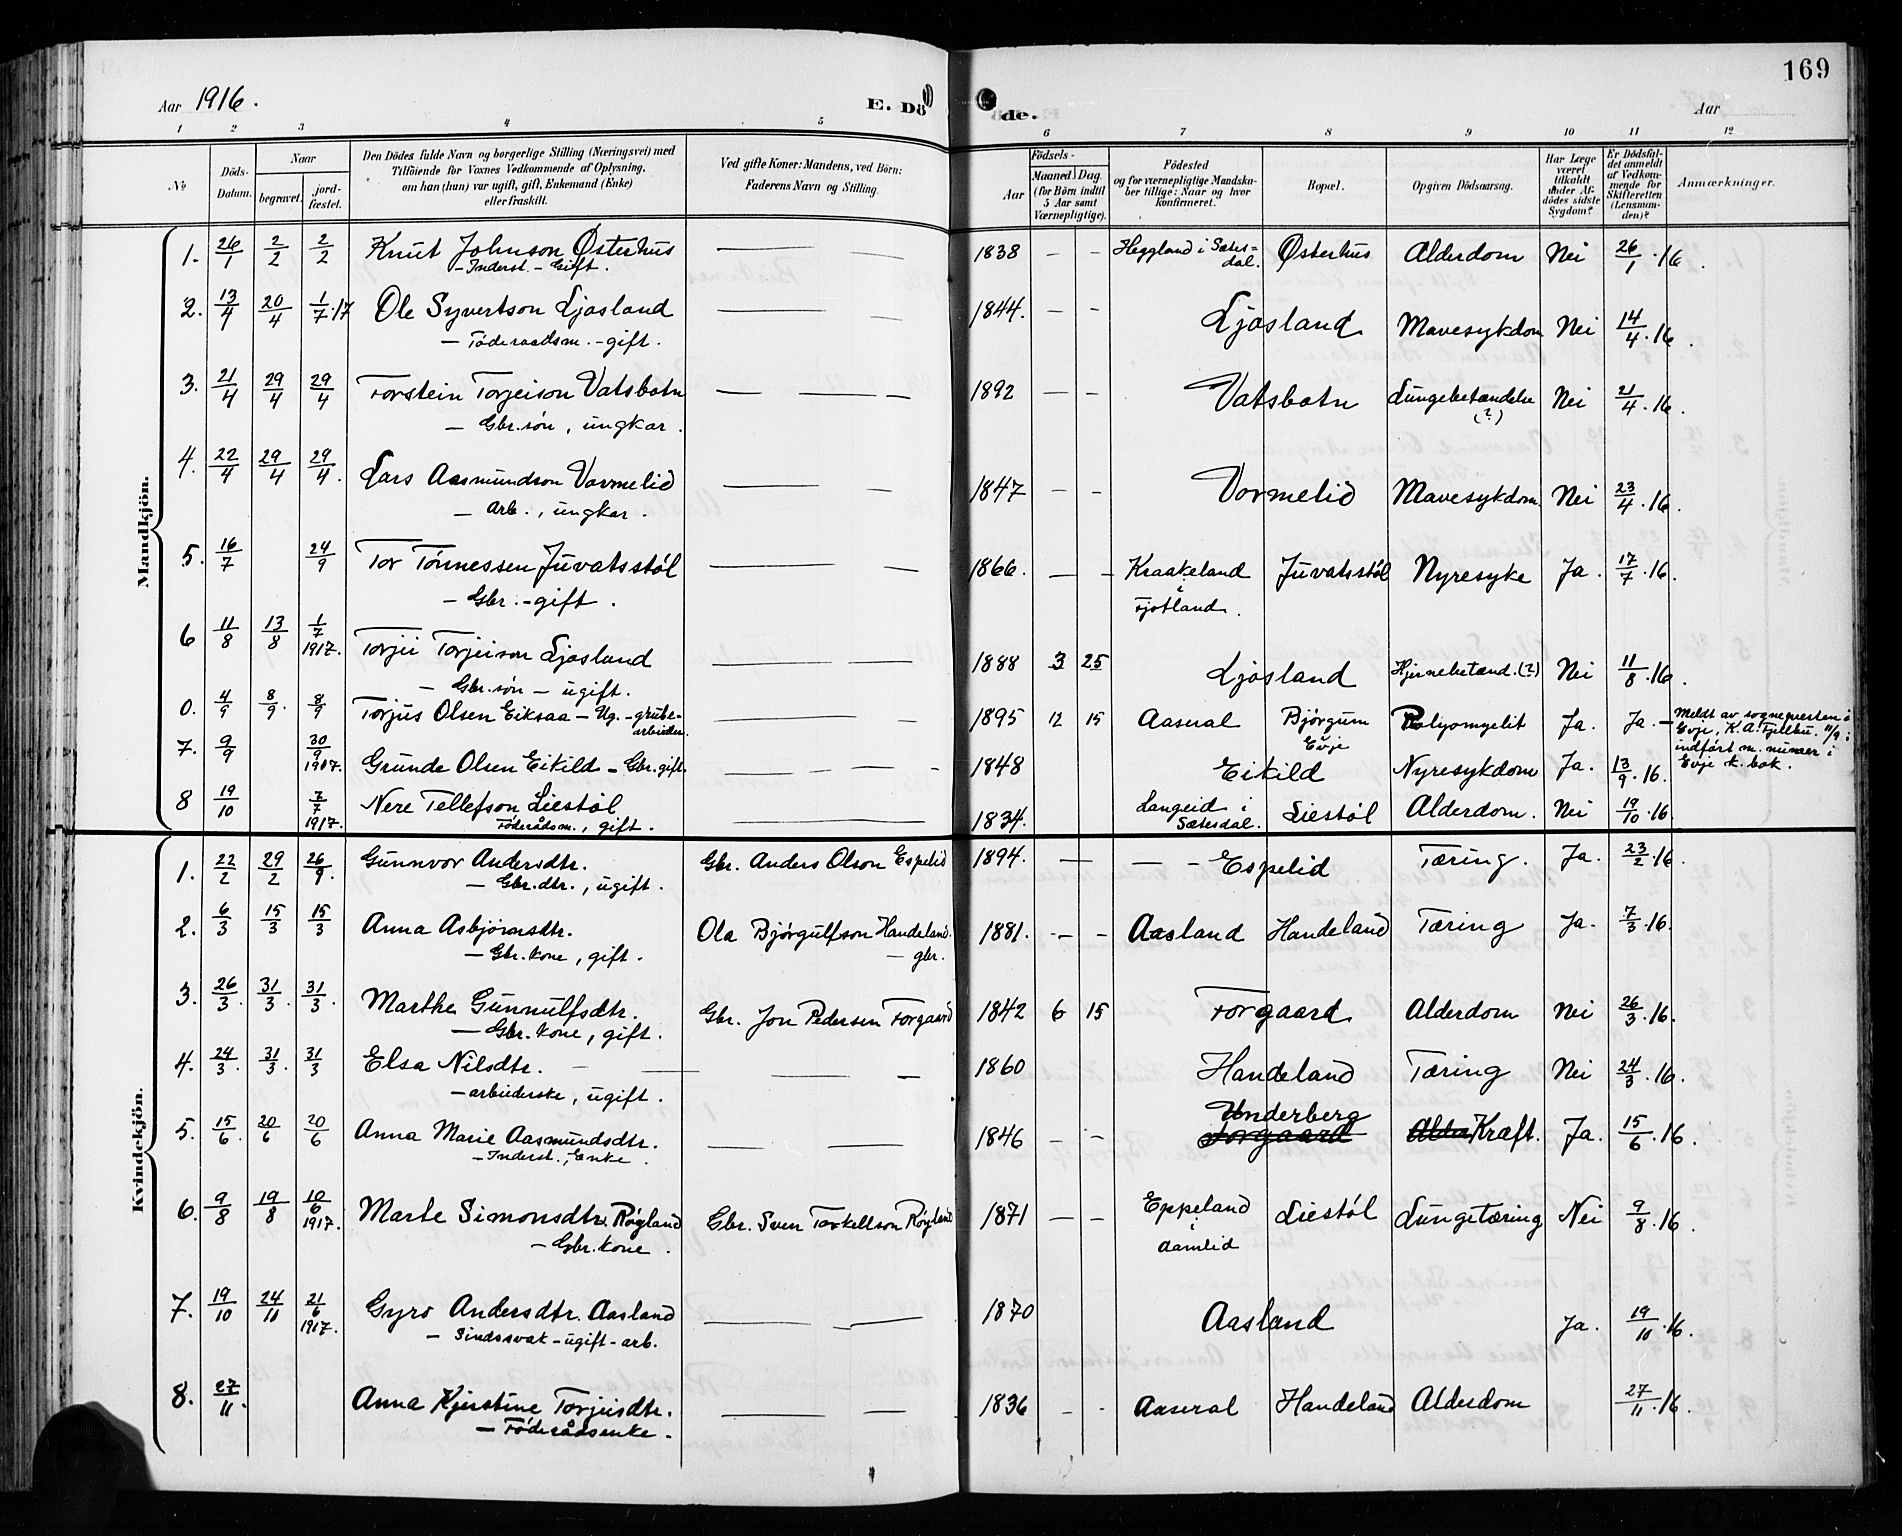 169
Aar 1916.
E. Döde.
Aar
1 2 3 4 5 6 7 8 9 10 11 12
№
Döds-Datum.
Naar begravet. jordfæstet.
Den Dödes fulde Navn og borgerlige Stilling (Næringsvei) med Tilföiende for Voxnes Vedkommende af Oplysning, om han (hun) var ugift, gift, Enkemand (Enke) eller fraskilt.
Ved gifte Koner: Mandens, ved Börn: Faderens Navn og Stilling.
Födsels- Aar Maaned Dag. (for Börn indtil 5 Aar samt Værnepligtige).
Födested og for værnepligtige Mandskaber tillige: Naar og hvor konfirmeret.
Bopæl.
Opgiven Dödsaarsag.
Har Læge været tilkaldt under Afdödes sidste Sygdom?
Er Dödsfaldet anmeldt af Vedkommende for Skifteretten (Lensmanden)?
Anmærkninger.
Mandkjön.
1. 26/1 2/2 2/2 Knut Johnson Østerhus — — 1838 - - Heggland i Sætesdal. Østerhus Alderdom Nei 26/1.16.
- Inderst. - Gift.
2. 13/4 20/4 1/7.17 Ole Syvertson Ljosland — — 1844. - - Ljosland Mavesykdom Nei 14/4.16.
- Föderaadsm. - gift.
3. 21/4 29/4 29/4 Torstein Torjeison Vatsbotn — — — 1892 - - Vatsbotn Lungebetændelse (?) Nei 21/4.16.
- Gbr.søn, ungkar.
4. 22/4 29/4 29/4. Lars Aasmundson Vormelid — — 1847 - - Vormelid Mavesykdom. Nei 23/4.16.
- Arb., ungkar.
5. 16/7 24/9 Tor Tönnessen Juvatsstöl — — 1866. - - Kraakeland i Fjotland. Juvatsstöl Nyresyke Ja. 17/7.16.
- Gbr. - gift.
6 11/8 13/8 1/7 1917. Torjei Torjeison Ljosland — — — 1888 3 25 Ljosland Hjernebetænd. (?) Nei 11/8.16.
- Gbr.søn - ugift.
0. 4/9 8/9. 8/9 Torjus Olsen Eiksaa - Ug. - grubearbeider. — — — 1895 12 15 Aaseral Bjørgum Evje Polyomyelit Ja. Ja. - Meldt av sognepresten i Evje, K.A. Fjellbu. 11/9; indført m. numer i Evje k. bok.
7. 9/9 30/9 1917. Gunde Olsen Eikild - Gbr. gift. — — — 1848 Eikild Nyresykdom Ja. 13/9.16.
8 19/10 7/7 1917. Nere Tellefson Liestöl — 1834. Langeid i Sætesdal. Liestöl Alderdom. Nei 19/10.16
Föderådsm., gift.
Kvindekjön.
1. 22/2 29/2 26/9 Gunnvor Andersdtr. Gbr. Anders Olson Espelid 1894. — — Espelid Tæring. Ja. 23/2.16.
- Gbr.dtr., ugift.
2. 6/3 15/3 15/3 Anna Asbjörnsdtr. Ola Bjørgulfson Handeland. - gbr. 1881. - - Aasland Handeland Tæring Ja. 7/3.16.
- Gbr. kone, gift.
3. 26/3. 31/3. 31/3. Marthe Gunnulfsdtr. Gbr. Jon Pedersen Torgaard 1842 6 15 Torgaard Alderdom Nei 26/3.16.
- Gbr. kone, gift.
4. 24/3. 31/3. 31/3 Elsa Nilsdtr. — — — 1860 Handeland Tæring Nei 24/3.16.
- arbeiderske, ugift.
5. 15/6. 20/6 20/6 Anna Marie Aasmundsdtr. — — 1846 - - Underberg Torgaard Alder Kræft. Ja. 15/6.16.
- Inderst., Enke.
6. 9/8 19/8 10/6 1917. Marte Simonsdtr. Røyland Gbr. Sven Torkellson Røyland 1871 — - Eppeland i Aamlid Liestöl Lungetæring Nei 9/8.16.
- Gbr. kone.
7. 19/10 24/11 21/6 1917. Gyro Andersdtr. Aasland — — — 1870 Aasland Ja. 19/11.16.
- Sindssvak - ugift - arb.
8. 27/11. Anna Kjerstine Torjeisdtr. — — 1836 - - Aaseral Handeland Alderdom 27/11.16.
- Föderådsenke.